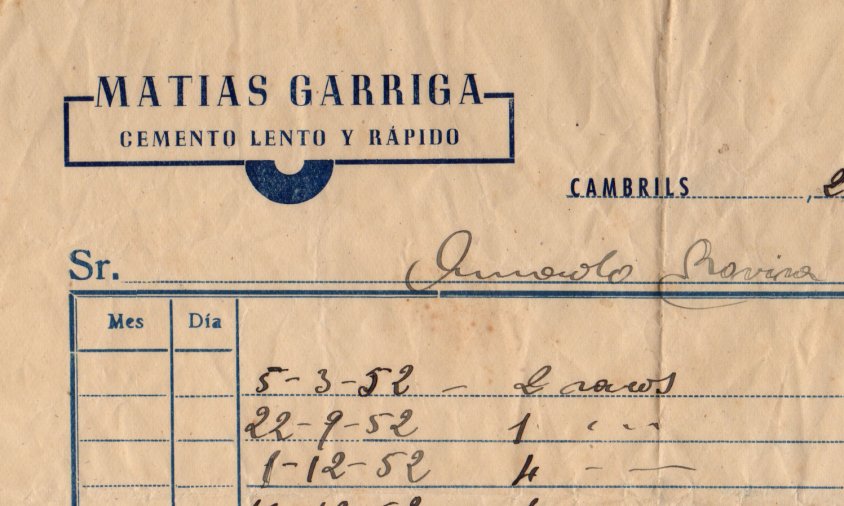 MATIAS GARRIGA
CEMENTO LENTO Y RÁPIDO
CAMBRILS
Sr. Rovira
Mes Día
5-3-52 - 2 sacos
22-9-52 1 " "
1-12-52 4 - —